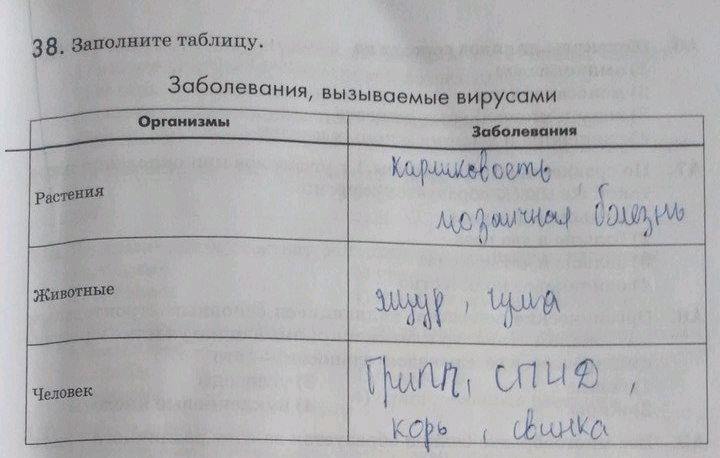 38. Заполните таблицу.
Заболевания, вызываемые вирусами
Организмы
Заболевания
Растения
карликовость
мозаичная болезнь
Животные
ящур, чума
Человек
Грипп, СПИД,
корь, свинка